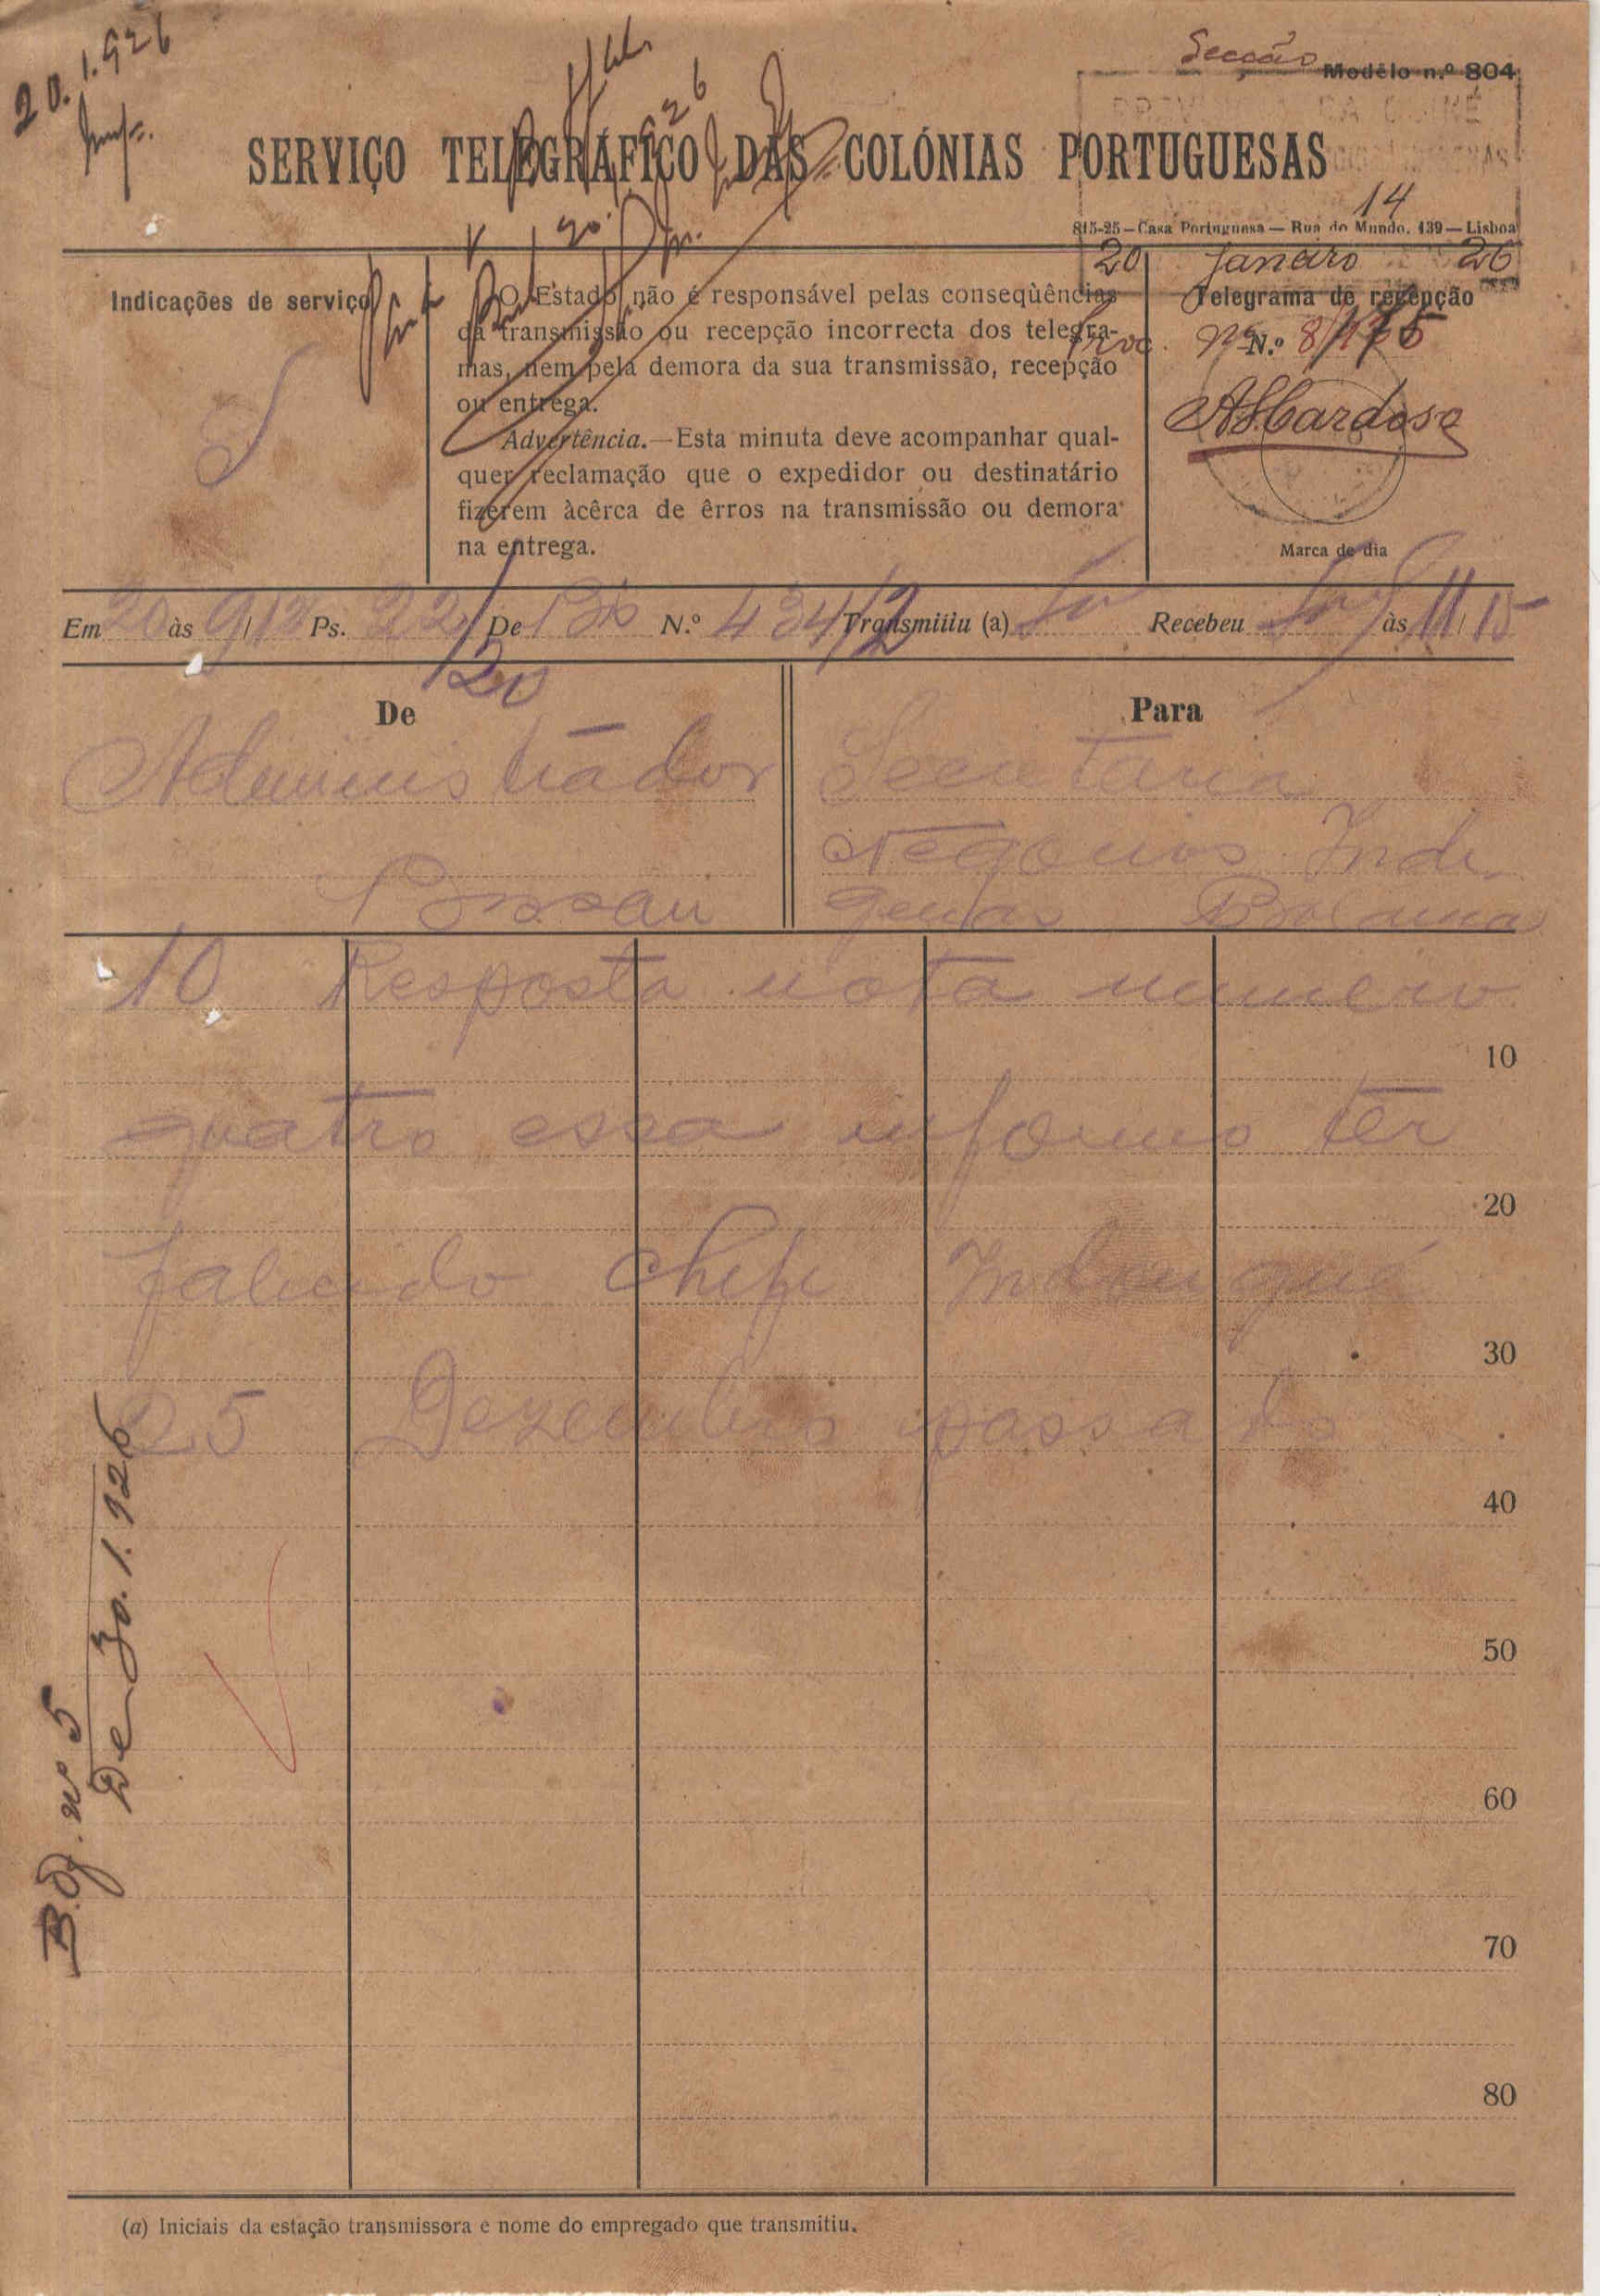 20.1.926
Secção
Modêlo n.º 804
PROVINCIA DA GUINÉ
SERVIÇO TELEGRÁFICO DAS COLÓNIAS PORTUGUESAS
14
815-25—Casa Portuguesa—Rua do Mundo, 139—Lisboa
20 Janeiro 26
Indicações de serviço
O Estado não é responsável pelas conseqùências
da transmissão ou recepção incorrecta dos telegra-
mas, nem pela demora da sua transmissão, recepção
ou entrega.
Advertência.—Esta minuta deve acompanhar qual-
quer reclamação que o expedidor ou destinatário
fizerem àcêrca de êrros na transmissão ou demora
na entrega.
Telegrama de recepção
Proc. N.º
ASCardoso
Marca de dia
Em 20 às 9/13 Ps. 22/20 De Bo N.º 434/2 Transmitiu (a) Recebeu às 11/15
De
Administrador
Bissau
Para
Secretaria
Negocios Indi
genas Bolama
10 Resposta nota numero
10
quatro essa informo ter
20
falecido chefe
30
25 Dezembro passado
40
50
60
70
80
B. Of. nº 5
De 30.1.926
(a) Iniciais da estação transmissora e nome do empregado que transmitiu.